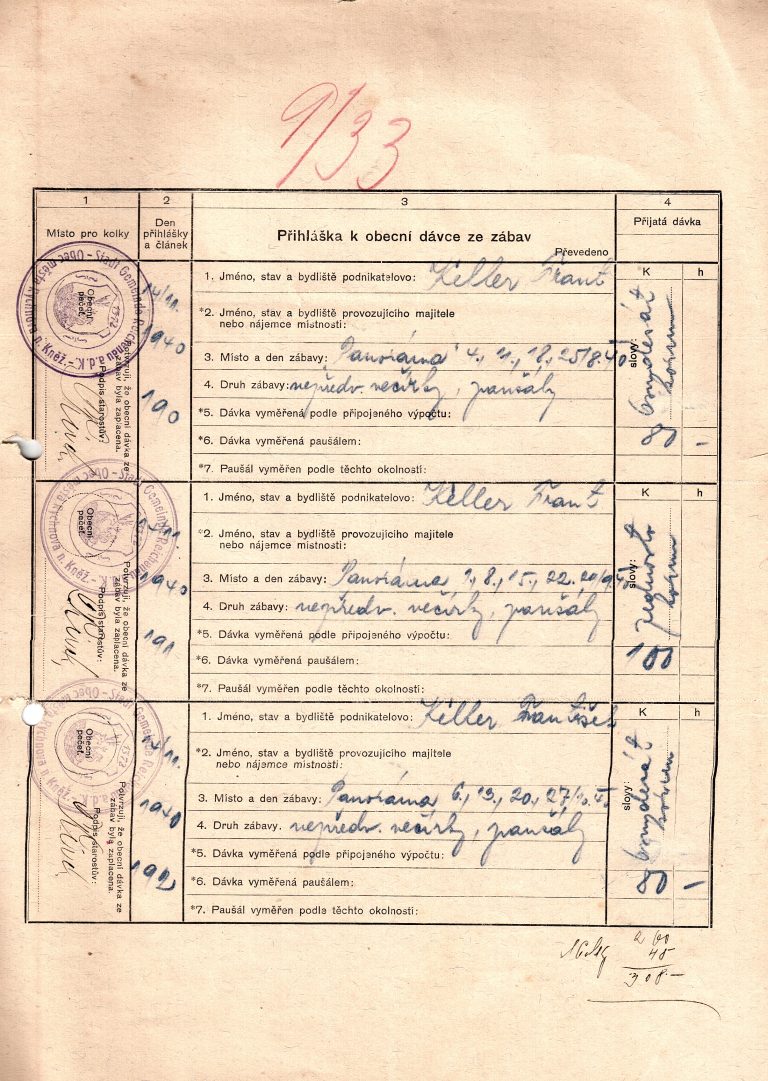 9/33
1 2 3 4
Místo pro kolky
Den přihlášky a článek
Přihláška k obecní dávce ze zábav
Převedeno
Přijatá dávka
K h
1. Jméno, stav a bydliště podnikatelovo: Keller Frant
*2. Jméno a bydliště provozujícího majitele
nebo nájemce místnosti:
3. Místo a den zábavy: Panoráma 4., 11., 18., 25/8.40
4. Druh zábavy: nepředv. večírky, paušály
*5. Dávka vyměřená podle připojeného výpočtu:
*6. Dávka vyměřená paušálem:
*7. Paušál vyměřen podle těchto okolností:
14/11.
1940
190
Obecní pečeť.
Potvrzuji, že obecní dávka ze zábav byla zaplacena.
Podpis starostův:
Stadt Gemeinde Reichenau a.d.K. - Obec města Rychnova n. Kněž. -
1372
slovy: osmdesát korun
80 –
K h
1. Jméno, stav a bydliště podnikatelovo: Keller Frant
*2. Jméno a bydliště provozujícího majitele
nebo nájemce místnosti:
3. Místo a den zábavy: Panoráma 1., 8., 15., 22., 29/9.40
4. Druh zábavy: nepředv. večírky, paušály
*5. Dávka vyměřená podle připojeného výpočtu:
*6. Dávka vyměřená paušálem:
*7. Paušál vyměřen podle těchto okolností:
14/11.
1940
191
Obecní pečeť.
Potvrzuji, že obecní dávka ze zábav byla zaplacena.
Podpis starostův:
slovy: jednosto korun
100
K h
1. Jméno, stav a bydliště podnikatelovo: Keller František
*2. Jméno a bydliště provozujícího majitele
nebo nájemce místnosti:
3. Místo a den zábavy: Panoráma 6., 13., 20., 27/10. 40
4. Druh zábavy. nepředv. večírky, paušály
*5. Dávka vyměřená podle připojeného výpočtu:
*6. Dávka vyměřená paušálem:
*7. Paušál vyměřen podle těchto okolností:
14/11.
1940
192
Obecní pečeť.
Potvrzuji, že obecní dávka ze zábav byla zaplacena.
Podpis starostův:
slovy: osmdesát korun
80 –
260
48
308.–